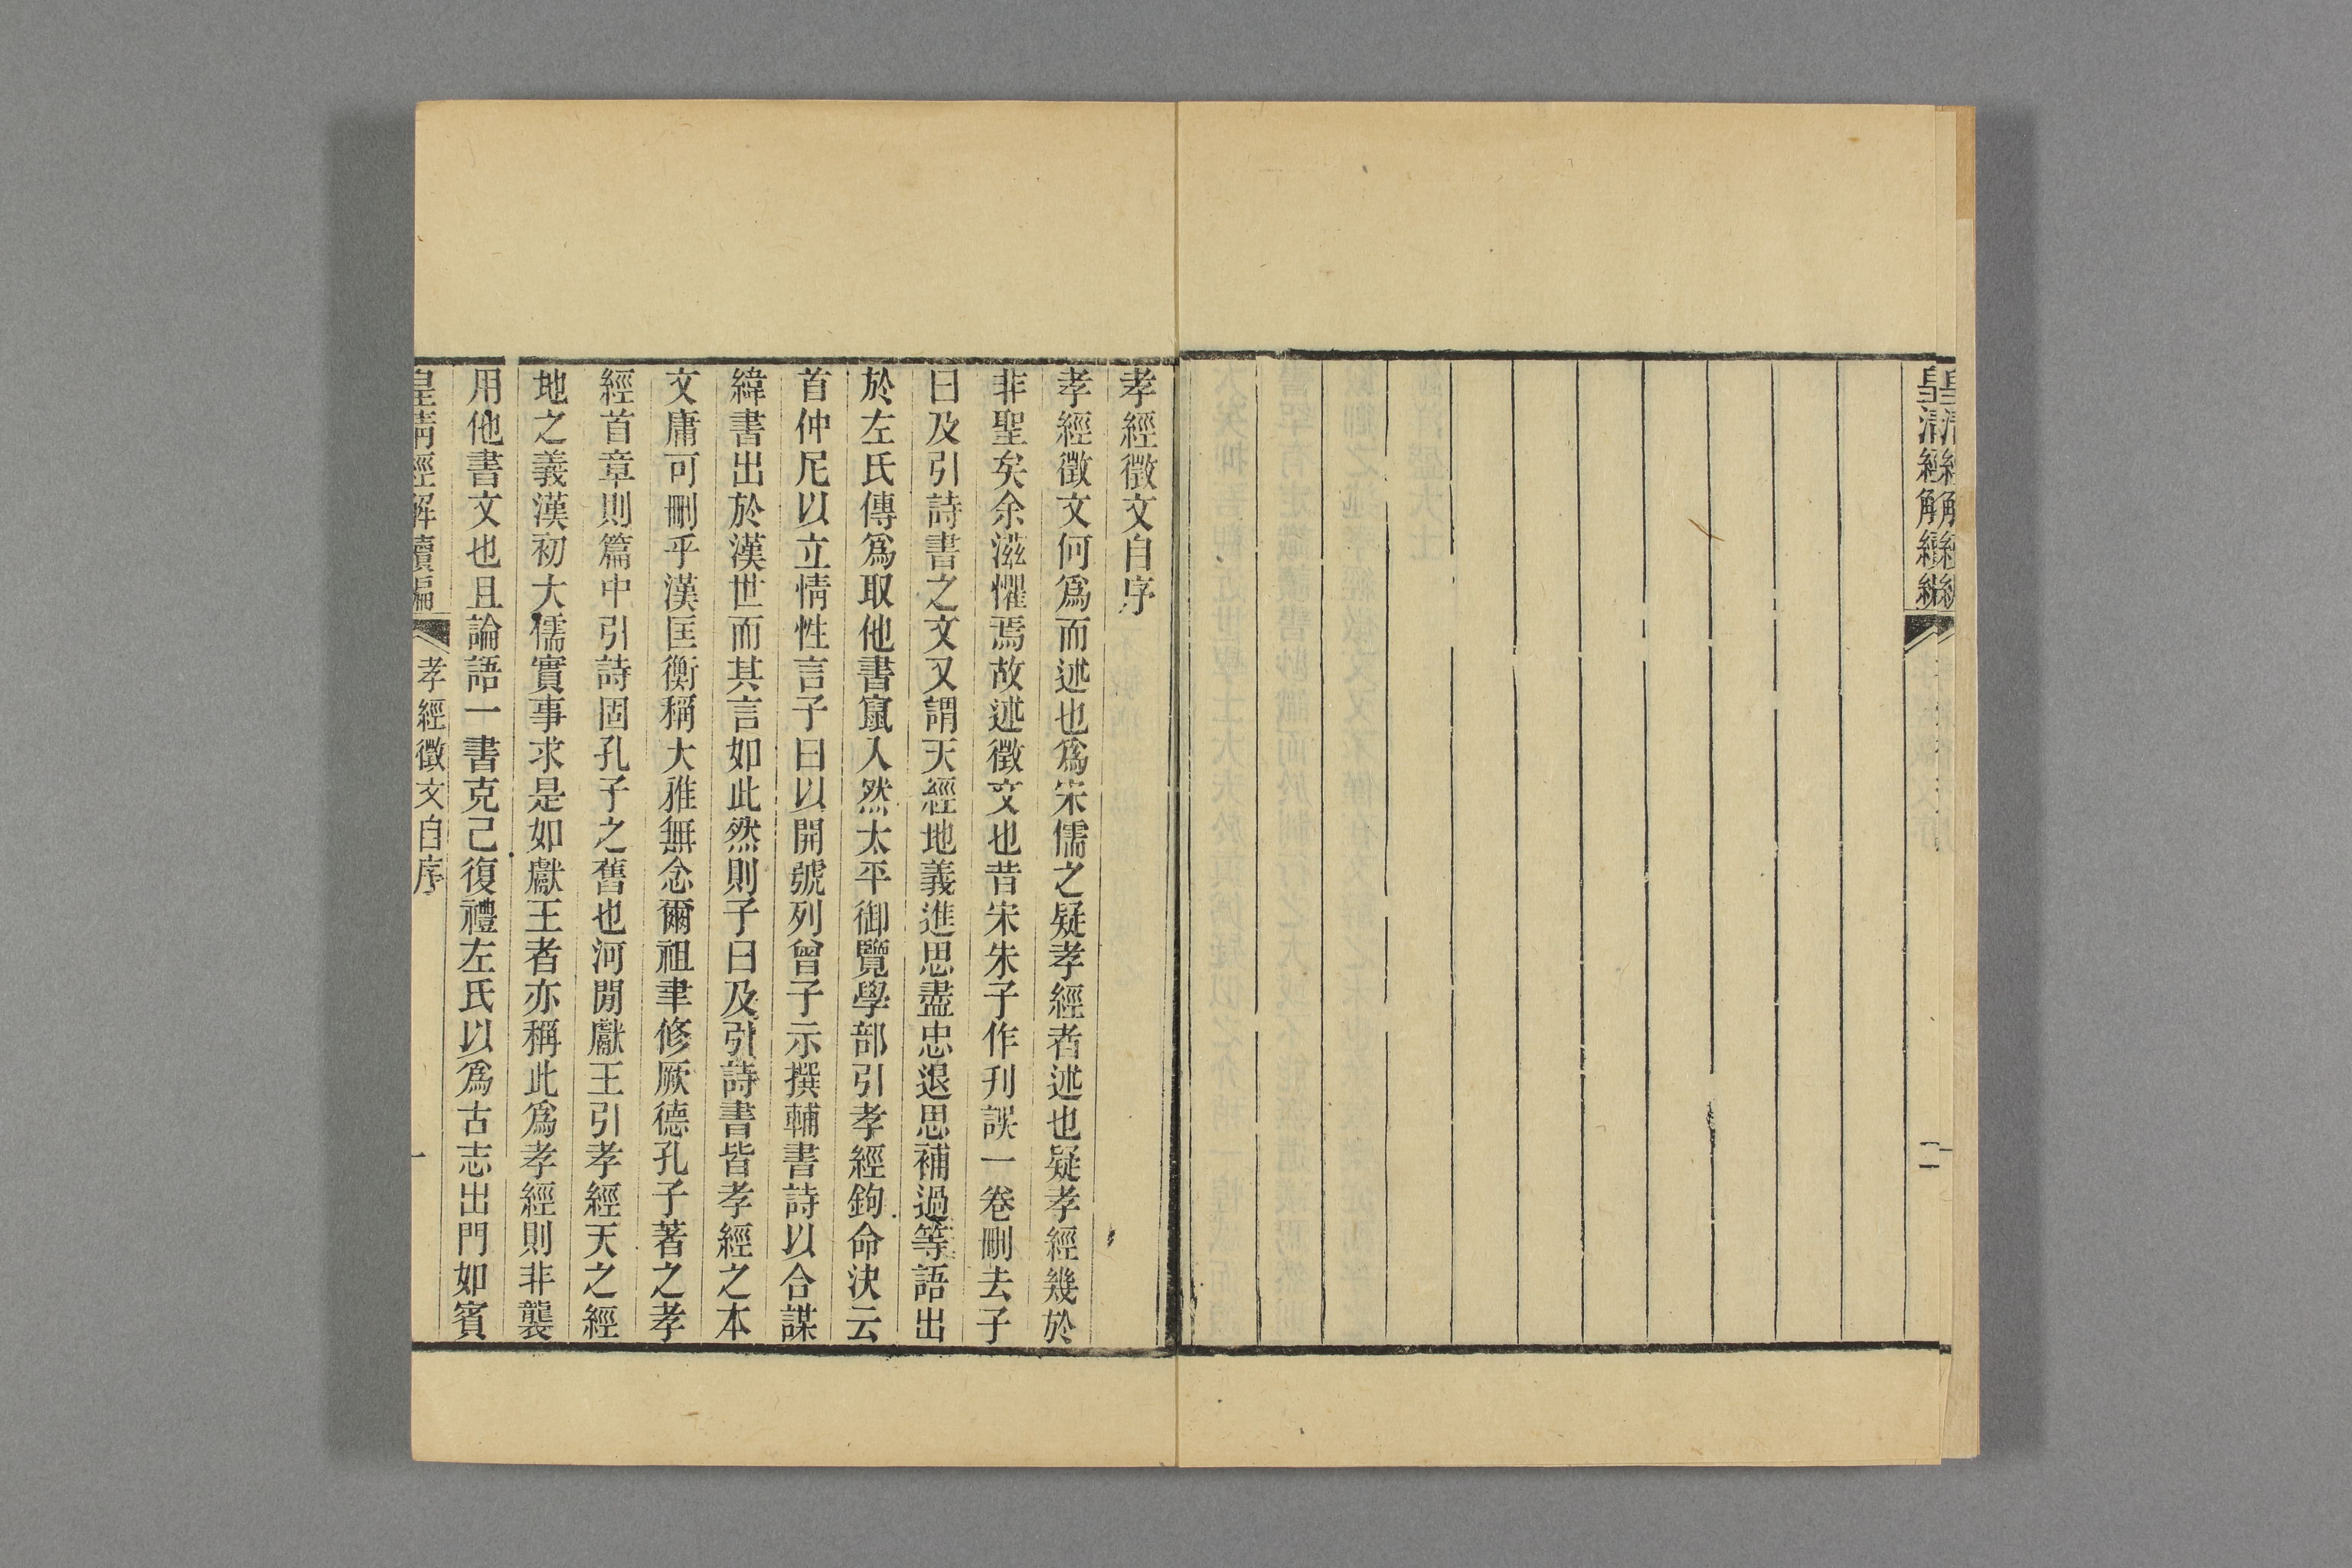 皇清經解續編
二
孝經徵文自序
孝經徵文何爲而述也爲宋儒之疑孝經者述也疑孝經幾於
非聖矣余滋懼焉故述徵文也昔宋朱子作刋誤一卷刪去子
曰及引詩書之文又謂天經地義進思盡忠退思補過等語出
於左氏傳爲取他書竄入然太平御覽學部引孝經鉤命決云
首仲尼以立情性言子曰以開號列曾子示撰輔書詩以合謀
緯書出於漢世而其言如此然則子曰及引詩書皆孝經之本
文庸可刪乎漢匡衡稱大雅無念爾祖聿修厥德孔子著之孝
經首章則篇中引詩固孔子之舊也河閒獻王引孝經天之經
地之義漢初大儒實事求是如獻王者亦稱此爲孝經則非襲
用他書文也且論語一書克己復禮左氏以爲古志出門如賓
皇清經解續編
孝經徵文自序
一